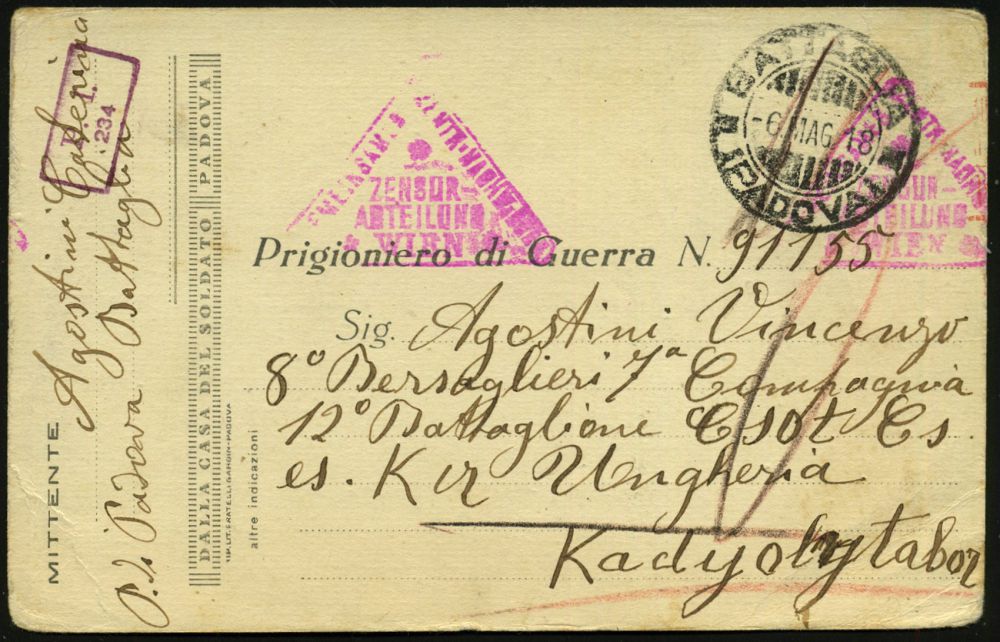 MITTENTE
Agostini Caterina
P. di Padova Battaglia
D. I.
234
DALLA CASA DEL SOLDATO PADOVA
altre indicazioni
ZENSUR-
ABTEILUNG
WIEN
BATTAGLIA
-6 MAG. 18
(PADOVA)
ZENSUR-
ABTEILUNG
WIEN
Prigioniero di Guerra N. 91155
Sig. Agostini Vincenzo
8° Bersaglieri 7ª Compagnia
12° Battaglione Csot Cs.
es. Ker Ungheria
Kadyolytabor